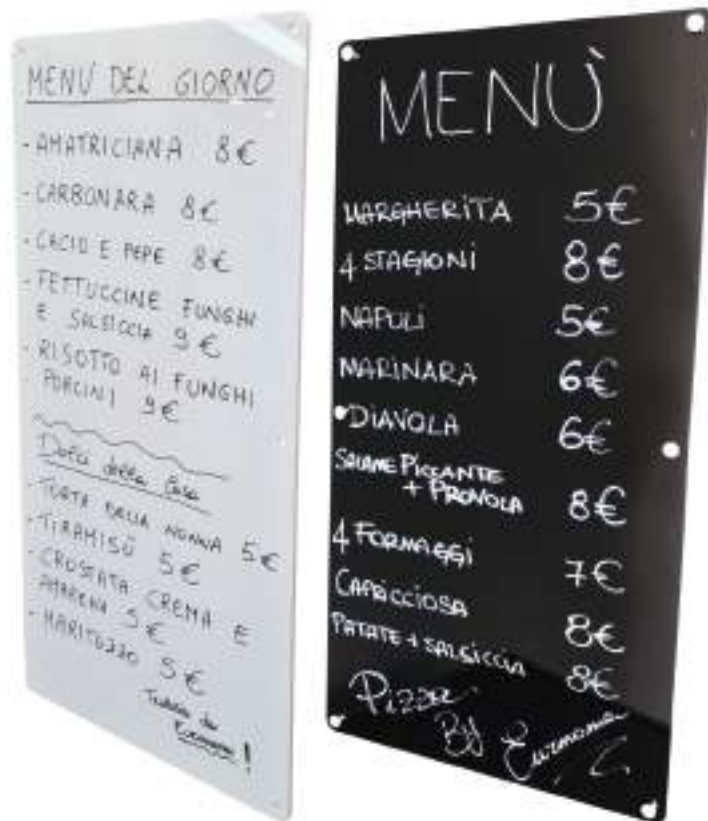 MENÙ DEL GIORNO
- AMATRICIANA 8€
- CARBONARA 8€
- CACIO E PEPE 8€
- FETTUCCINE FUNGHI
E SALSICCIA 9€
- RISOTTO AI FUNGHI
PORCINI 9€
Dolci della Casa
- TORTA DELLA NONNA 5€
- TIRAMISÙ 5€
- CROSTATA CREMA E
AMARENA 5€
- MARITOZZO 5€
MENÙ
MARGHERITA 5€
4 STAGIONI 8€
NAPOLI 5€
MARINARA 6€
DIAVOLA 6€
SALAME PICCANTE
+ PROVOLA 8€
4 FORMAGGI 7€
CAPRICCIOSA 8€
PATATE + SALSICCIA 8€
Pizza
By